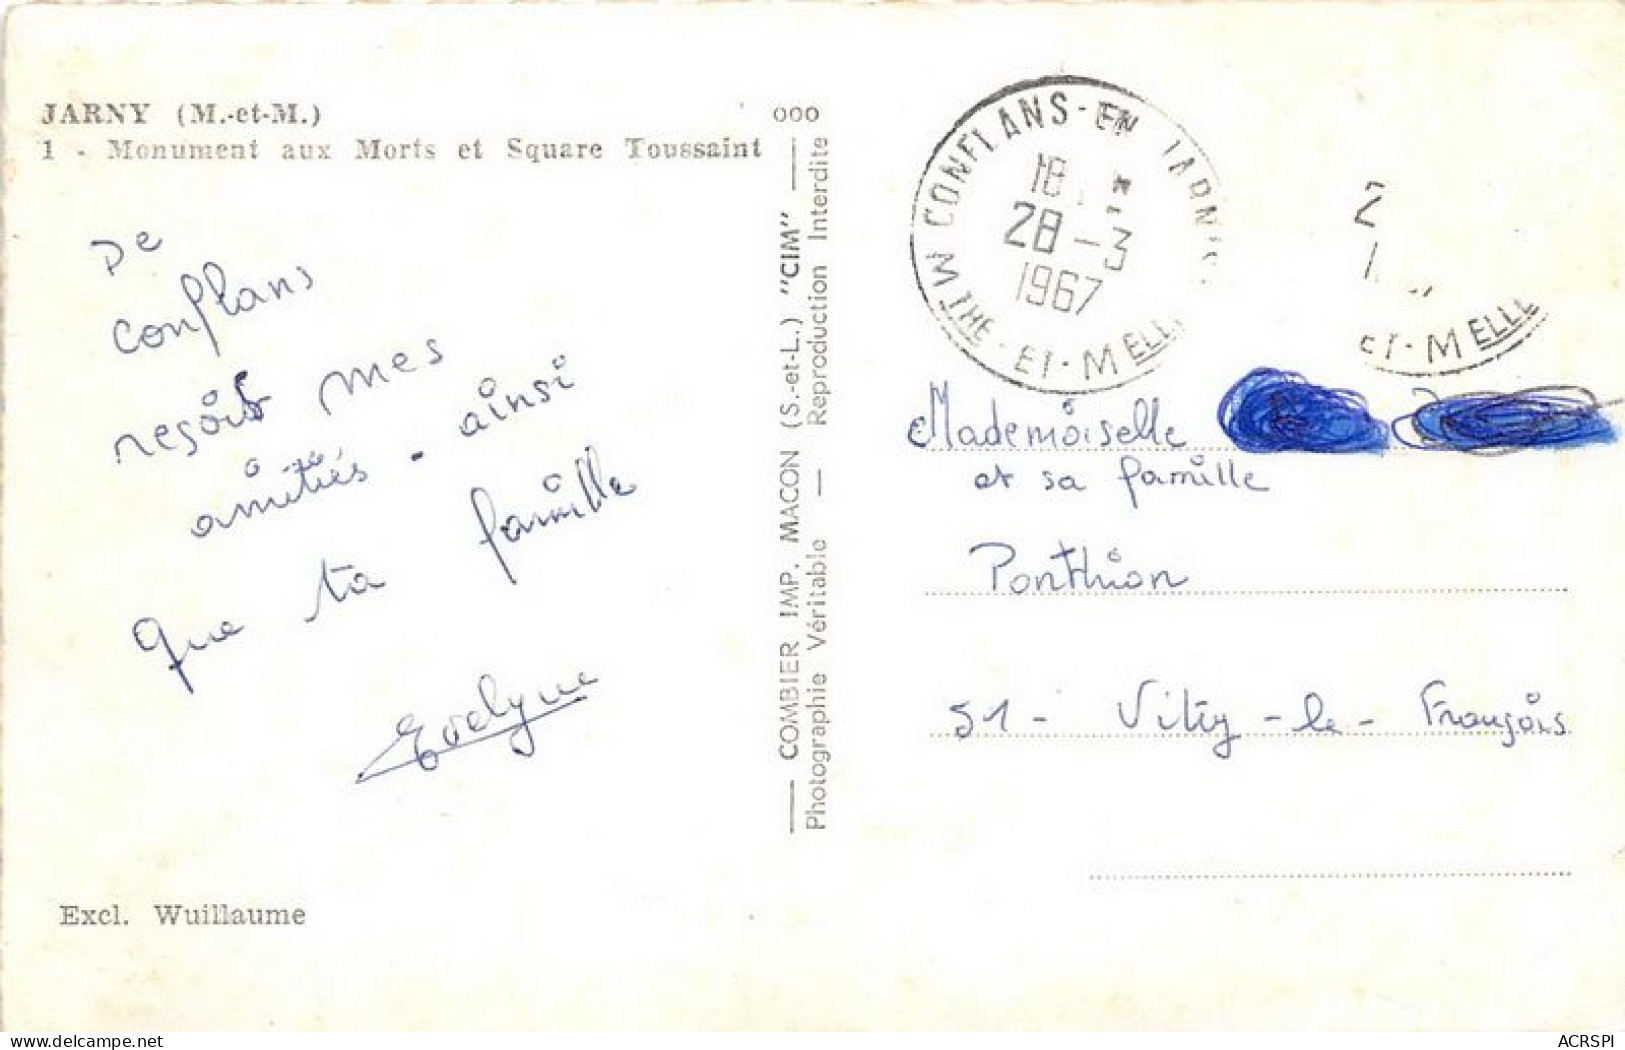 JARNY (M.-et-M.)
1 - Monument aux Morts et Square Toussaint
De
Conflans
reçois mes
amitiés - ainsi
que ta famille
Evelyne
Excl. Wuillaume
ooo
COMBIER IMP. MACON (S.-et-L.) "CIM"
Photographie Véritable — Reproduction Interdite
CONFLANS-EN-JARNI
MTHE-ET-MELL
18
28-3
1967
ET-MELLE
Mademoiselle
et sa famille
Ponthion
51- Vitry-le-François
delcampe.net
ACRSPI